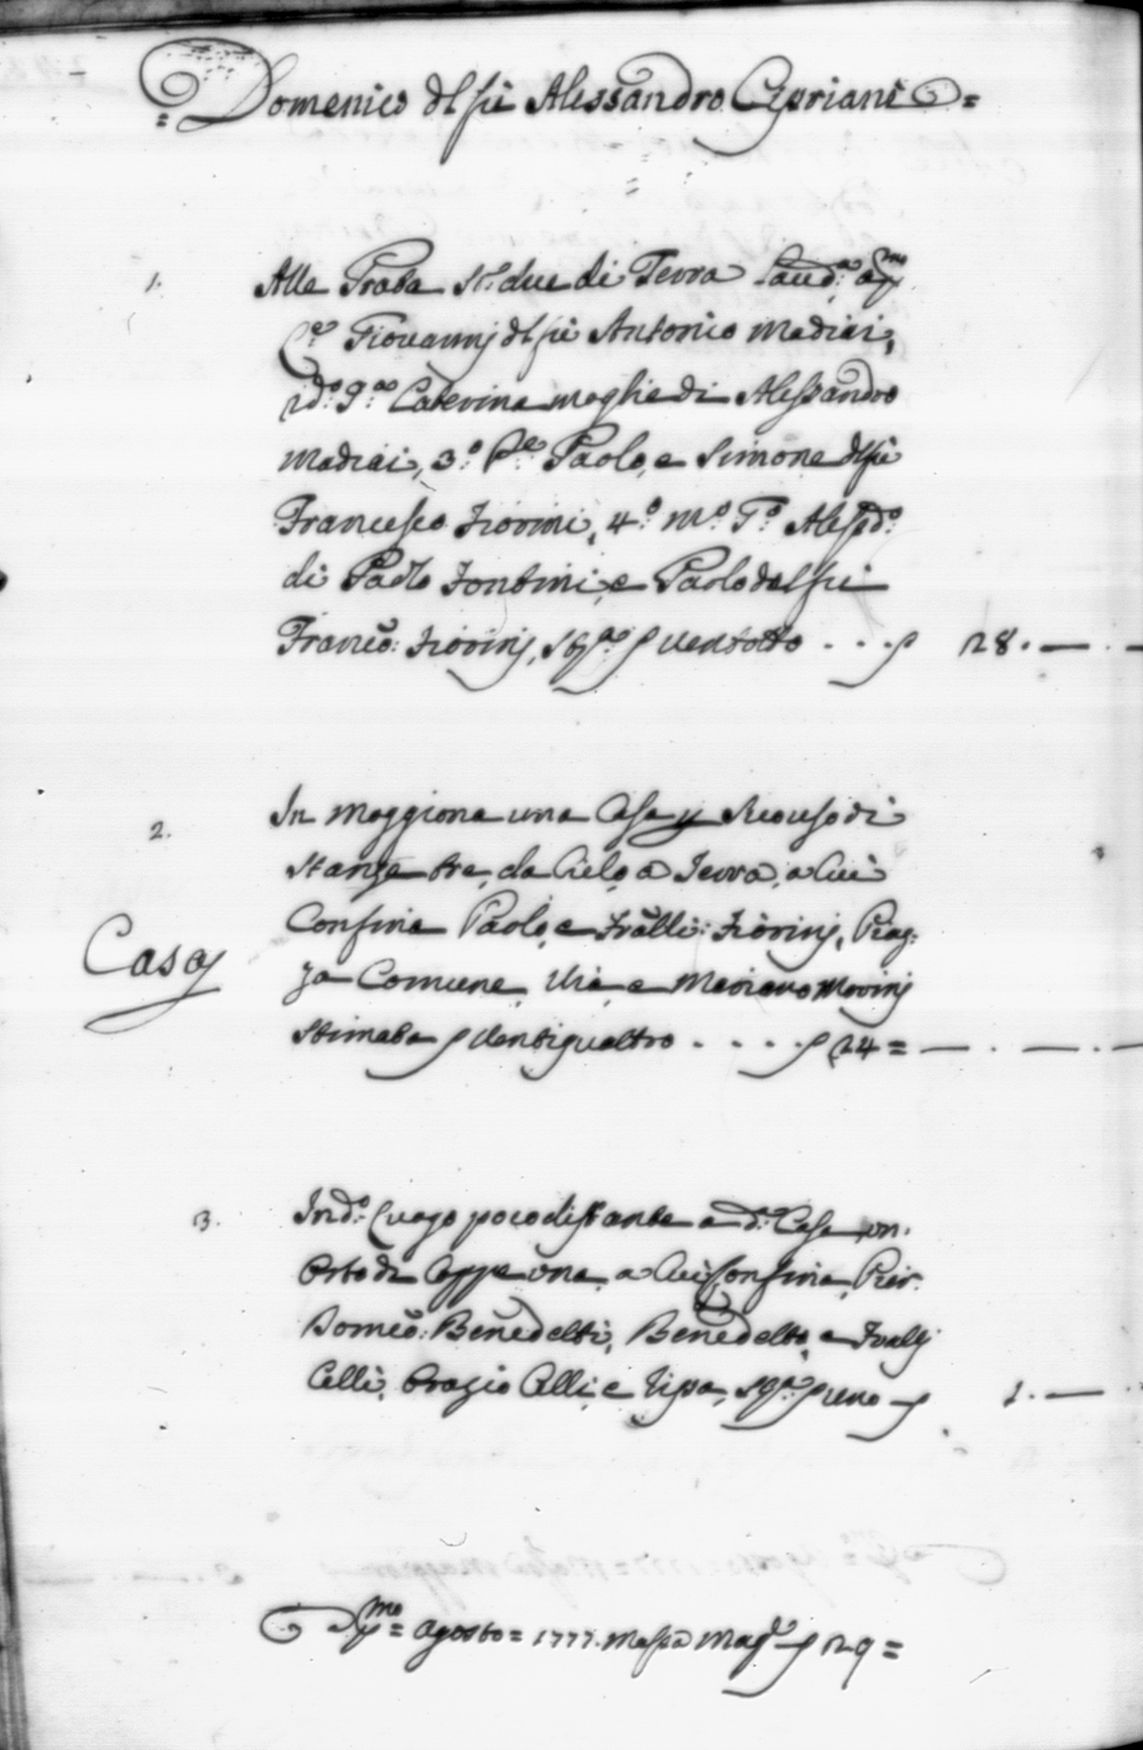 = Domenico dl fù Alessandro Cipriani =
1. Alle Prata st: due di Terra Lavd:a a p.mo
C:o Giovannj dl fù Antonio Madiai,
2do: 3:o Caterina moglie di Alessandro
Madiai, 3:o C:o Paolo, e Simone dl fù
Francesco Fiorini, 4:o m:o T:o Alessd:o
di Paolo Fontini, e Paolo del fù
Franco: Fiorinj, st:a ƒ ventotto . . . ƒ 28. —
2. In Moggiona una Casa p Suo uso di
stanze tre, da Cielo a Terra, a Cui
Confina Paolo, e Fratlli: Fiorinj, Piaz:
Casa
za Comune, Via, e Mariano Morinj
Stimata ƒ Ventiquattro . . . . ƒ 24 = — . — . —
3. In d:o Luogo poco distante a d:a Casa, un.
Orto di Coppe una, a Cui Confina, Pier.
Domco: Benedetti, Benedetto, e Frallj
Celli, Orazio Celli, e Ripa, st:a ƒ uno — ƒ 1. —
p.mo = Agosto = 1777. Massa Magg:e ƒ 29 =